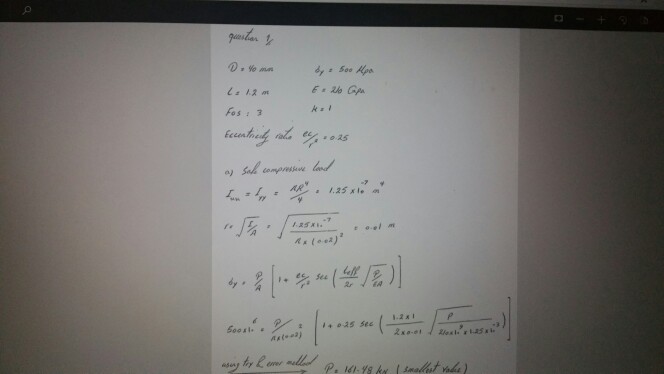 question 1/
D = 40 mm   σy = 500 Mpa
L = 1.2 m   E = 210 Gpa
Fos : 3   k = 1
Eccentricity ratio ec/r² = 0.25
a) Safe compressive load
Ixx = Iyy = πR⁴/4 = 1.25 x10⁻⁷ m⁴
r = √(I/A) = √(1.25x10⁻⁷ / π x (0.02)²) = 0.01 m
σy = P/A [1 + ec/r² sec (Leff/2r √(P/EA))]
500x10⁶ = P/πx(0.02)² [1 + 0.25 sec (1.2x1/2x0.01 √(P/210x10⁹x1.25x10⁻³))]
using try & error method → P = 161.48 kN (smallest value)